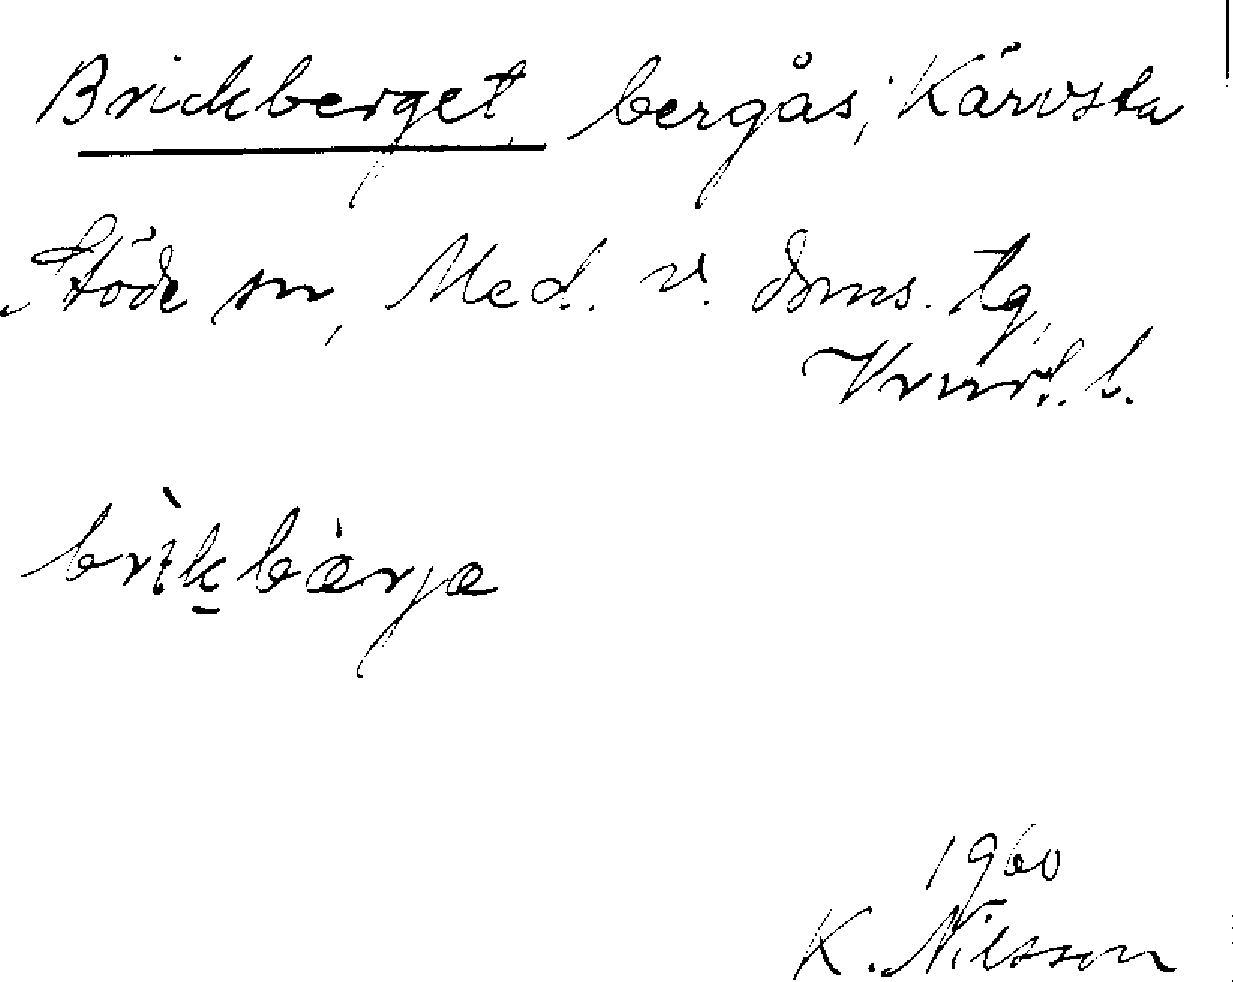 Brickberget, bergås, Kärvsta
Stöde sn, Med. v. doms. tg,
Vrnrl. l.
brìkbàrja
1960
K. Nilsson